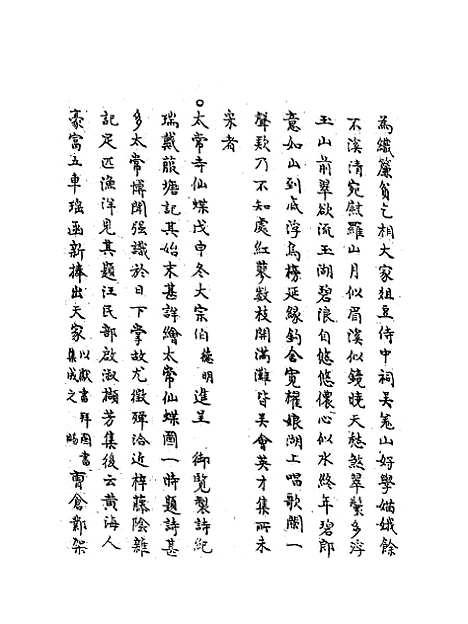 為織簾貧乞相大家俎豆侍中祠吳羗山好學姻娥餘
不溪清宛慰羅山月似眉溪似鏡曉天愁煞翠鬟多浮
玉山前翠欲流玉湖碧浪自悠悠儂心似水終年碧郎
意如山到底浮烏梅延緣釣舍寛櫂娘湖上唱歌闌一
聲欵乃不知處紅蓼數枝開滿灘皆吳會英才集所未
采者
○太常寺仙蝶戊申冬大宗伯德明進呈 御覽製詩紀
瑞戴菔塘記其始末甚詳繪太常仙蝶圖一時題詩甚
多太常博聞强識於日下掌故尤徵殫洽近梓藤陰雜
記足匹漁洋見其題汪民部啟淑擷芳集後云黄海人
豪富五車瑤函新捧出天家以獻書拜圖書集成之賜曹倉鄴架